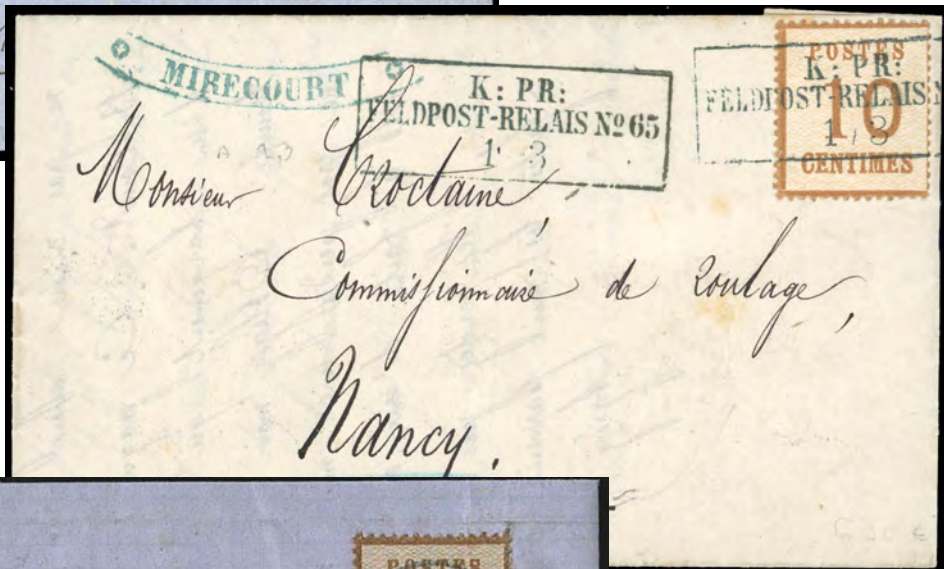 MIRECOURT
K: PR:
FELDPOST-RELAIS No 65
1 3
K: PR:
FELDPOST-RELAIS N
1 3
POSTES
10
CENTIMES
Monsieur
Commissionaire de Roulage,
Nancy.
POSTES